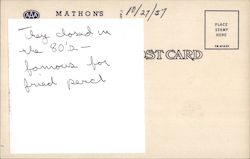 AAA MATHON'S 10/27/57
PLACE
STAMP
HERE
They closed in
the 80's -
famous for
fried perch
OST CARD